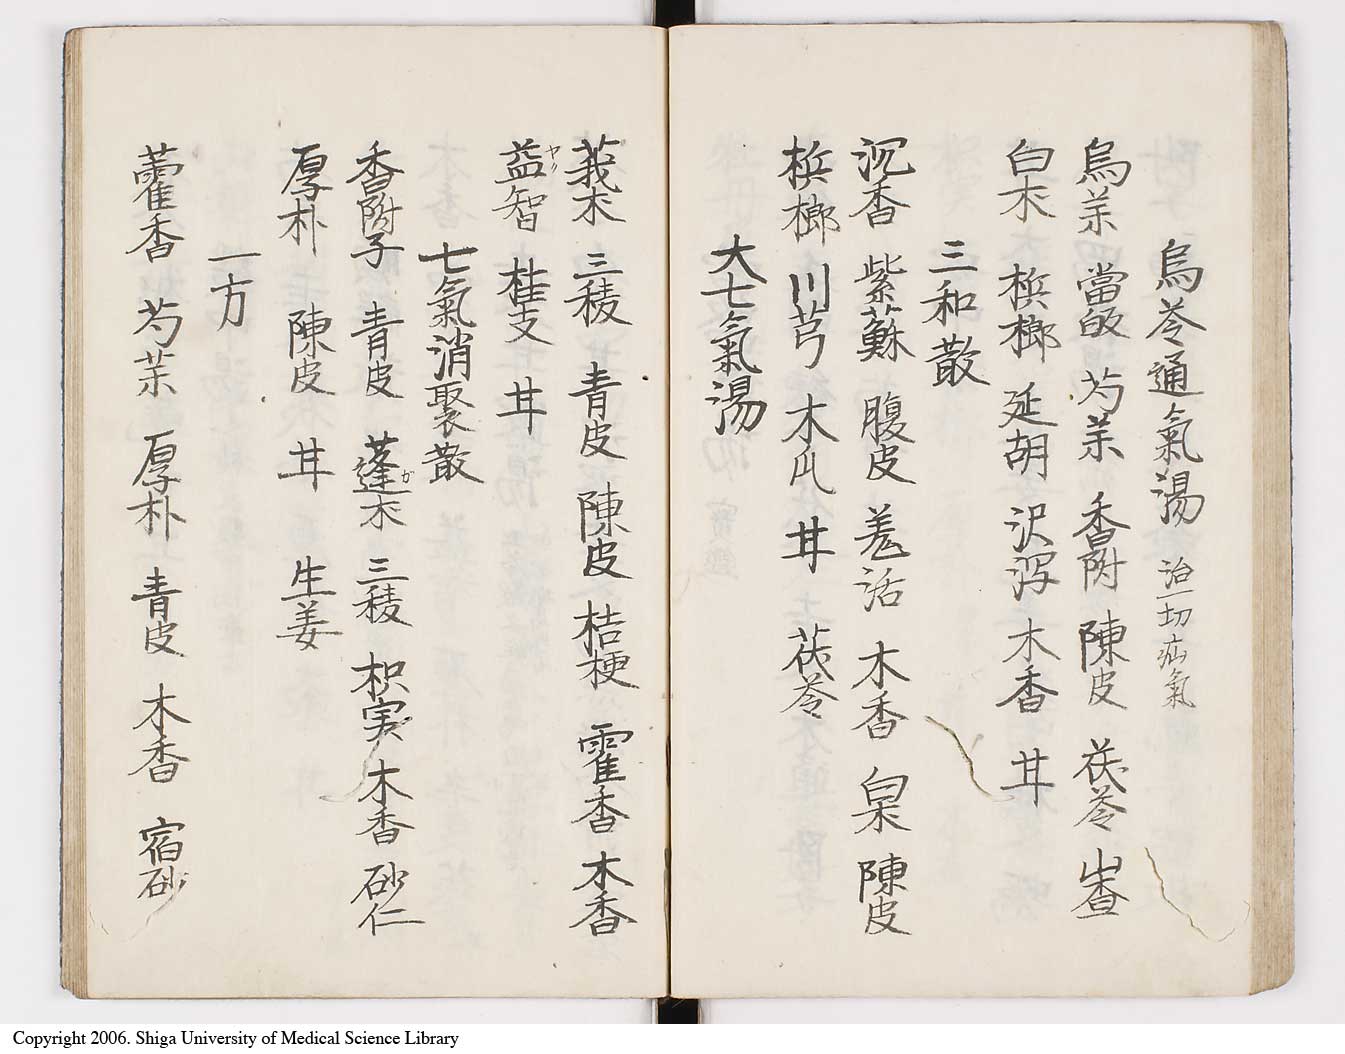 烏苓通氣湯 治一切疝氣
烏茱 當皈 芍茱 香附 陳皮 茯苓 山査
白朮 檳榔 延胡 沢瀉 木香 甘
三和散
沉香 紫蘇 腹皮 羌活 木香 白朮 陳皮
檳榔 川芎 木瓜 甘 茯苓
大七氣湯
莪朮 三稜 青皮 陳皮 桔梗 霍香 木香
益智 桂支 甘
ヤク
七氣消聚散
香附子 青皮 蓬朮 三稜 枳実 木香 砂仁
カ
厚朴 陳皮 甘 生姜
一方
藿香 芍茱 厚朴 青皮 木香 宿砂
Copyright 2006. Shiga University of Medical Science Library